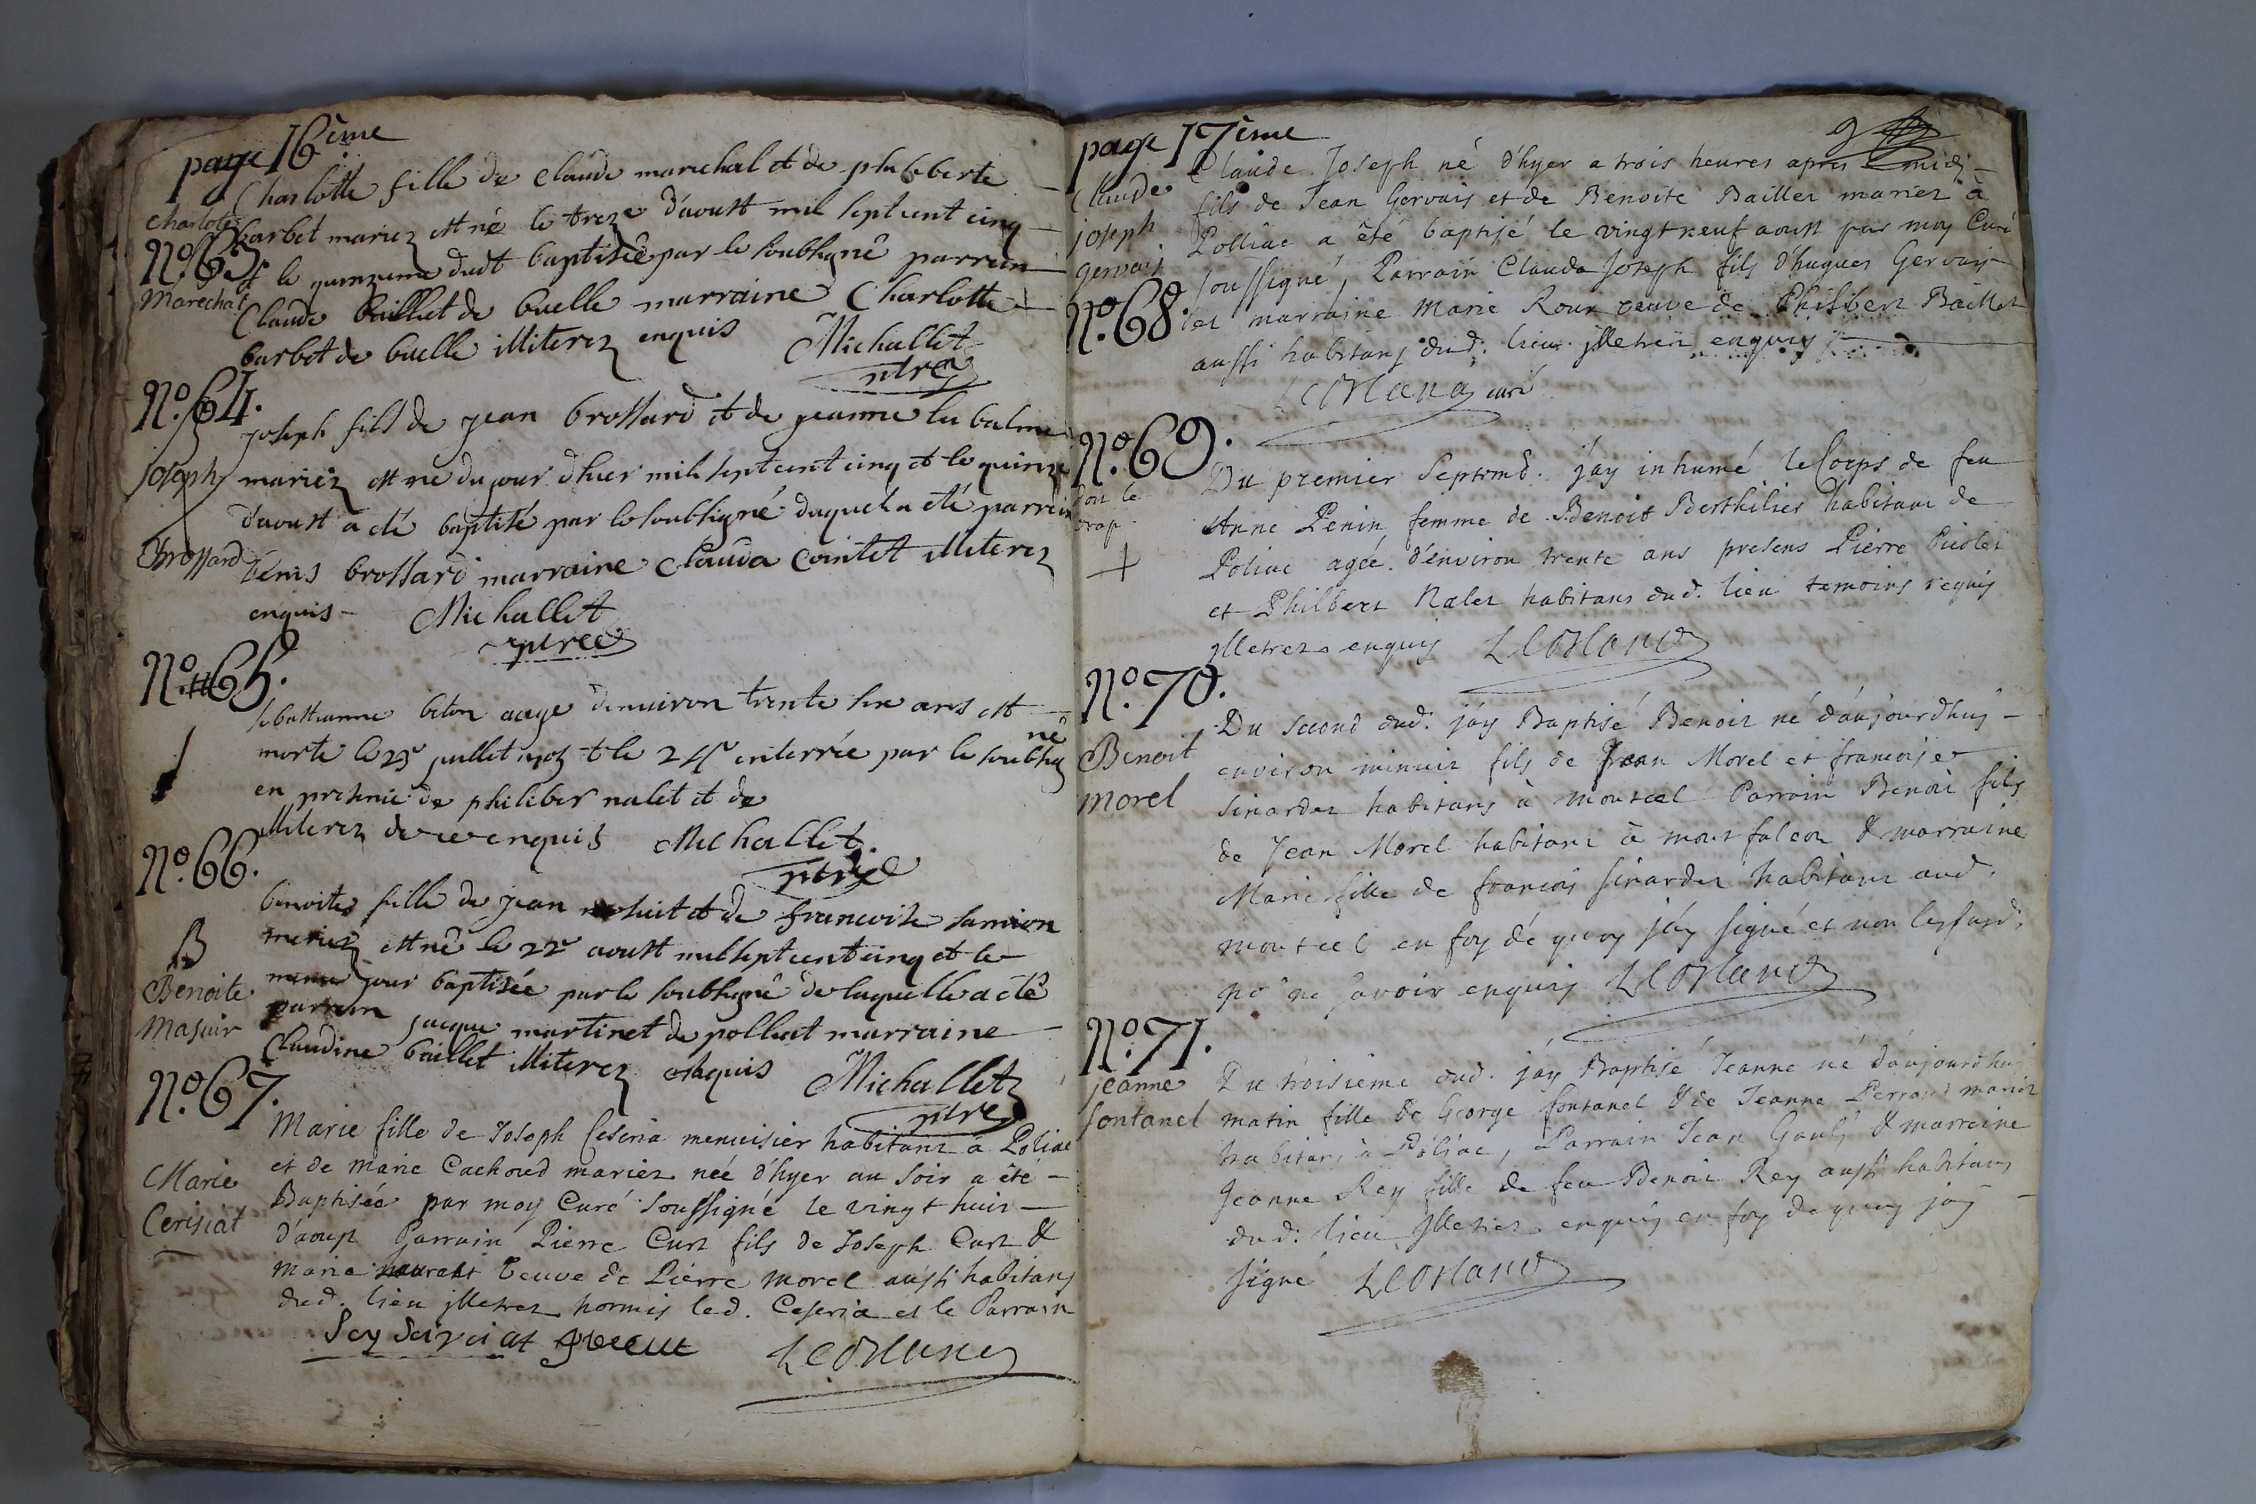 page 16ème
Charlotte fille de claude marechal et de philiberte
Charlote barbet mariez est né le treze d'aoust mil sept cent cinq
N.o 63 et le quinzieme dudt baptisée par le soubsigné parrain
Marechal Claude baillet de buelle marraine Charlotte
barbet de buelle illiterez enquis Michallet
ptre
N.o 64.
joseph fils de jean brossard et de jeanne la balme
joseph mariez est né du jour d'hier mil sept cent cinq et le quinze
d'aoust a été baptisé par le soubsigné duquel a été parrain
Brossard denis brossard marraine Clauda Cointet illiterez
enquis Michallet
ptre
N.o 65.
sebastianne beton aage denviron trente six ans est
morte le 23e juillet 1705 et le 24e enterrée par le soubsigné
en presence de philiber nalet et de
illiterez de ce enquis Michallet.
ptre
N.o 66.
benoite fille de jean masuit et de francoise samion
B mariez est né le 22e aoust mil sept cent cinq et le
Benoite meme jour baptisée par le soubsigné de laquelle a été
Masuir parrain jacque martinet de polliat marraine
Claudine baillet illiterez enquis Michallet
ptre
N.o 67.
Marie fille de Joseph Ceseria menuisier habitant à Poliac
et de Marie Cachoud mariez née d'hyer au soir a été
Marie Baptisée par moy Curé soussigné le vingt huit
Cerisiat d'aoust Parrain Pierre Curt fils de Joseph Curt &
Marie veuve de Pierre Morel aussi habitans
dud. lieu jlletrez hormis led. Ceseria et le Parrain
Leorland
page 17ème
Claude Joseph né d'hyer a trois heures apres midi
Claude fils de Jean Gervais et de Benoite Baillet mariez à
joseph Polliac a été baptisé le vingt neuf aoust par moy Curé
gervais soussigné, Parrain Claude Joseph fils d'hugues Gervais
N.o 68. et marraine Marie Roux veuve de Philibert Baillet
aussi habitans dud. lieu jlletrez enquis
Leorland curé
N.o 69.
Du premier Septemb. j'ay inhumé le Corps de feu
don le drap Anne Penin femme de Benoit Berthilier habitant de
Poliac agée d'environ trente ans presens Pierre Picolet
et Philbert Nalet habitans dud. lieu temoins requis
jlletrez enquis Leorland
N.o 70.
Du second dud. j'ay Baptisé Benoit né d'aujourdhuy
Benoit environ minuit fils de Jean Morel et francoise
morel Sirardet habitans à montcel Parrain Benoit fils
de Jean Morel habitant à mont falcon & marraine
Marie fille de francois Sirardet habitant aud.
montcel en foy de quoy j'ay signé et non les susd.
po.r ne savoir enquis Leorland
N.o 71.
jeanne Du troisieme dud. j'ay Baptisé Jeanne né d'aujourdhuy
fontanel matin fille de George fontanel & de Jeanne Perraud mariez
habitans à Poliac, Parrain Jean & marraine
Jeanne Rey fille de feu Benoit Rey aussi habitans
dud. lieu jlletrez enquis en foy de quoy j'ay
signé Leorland